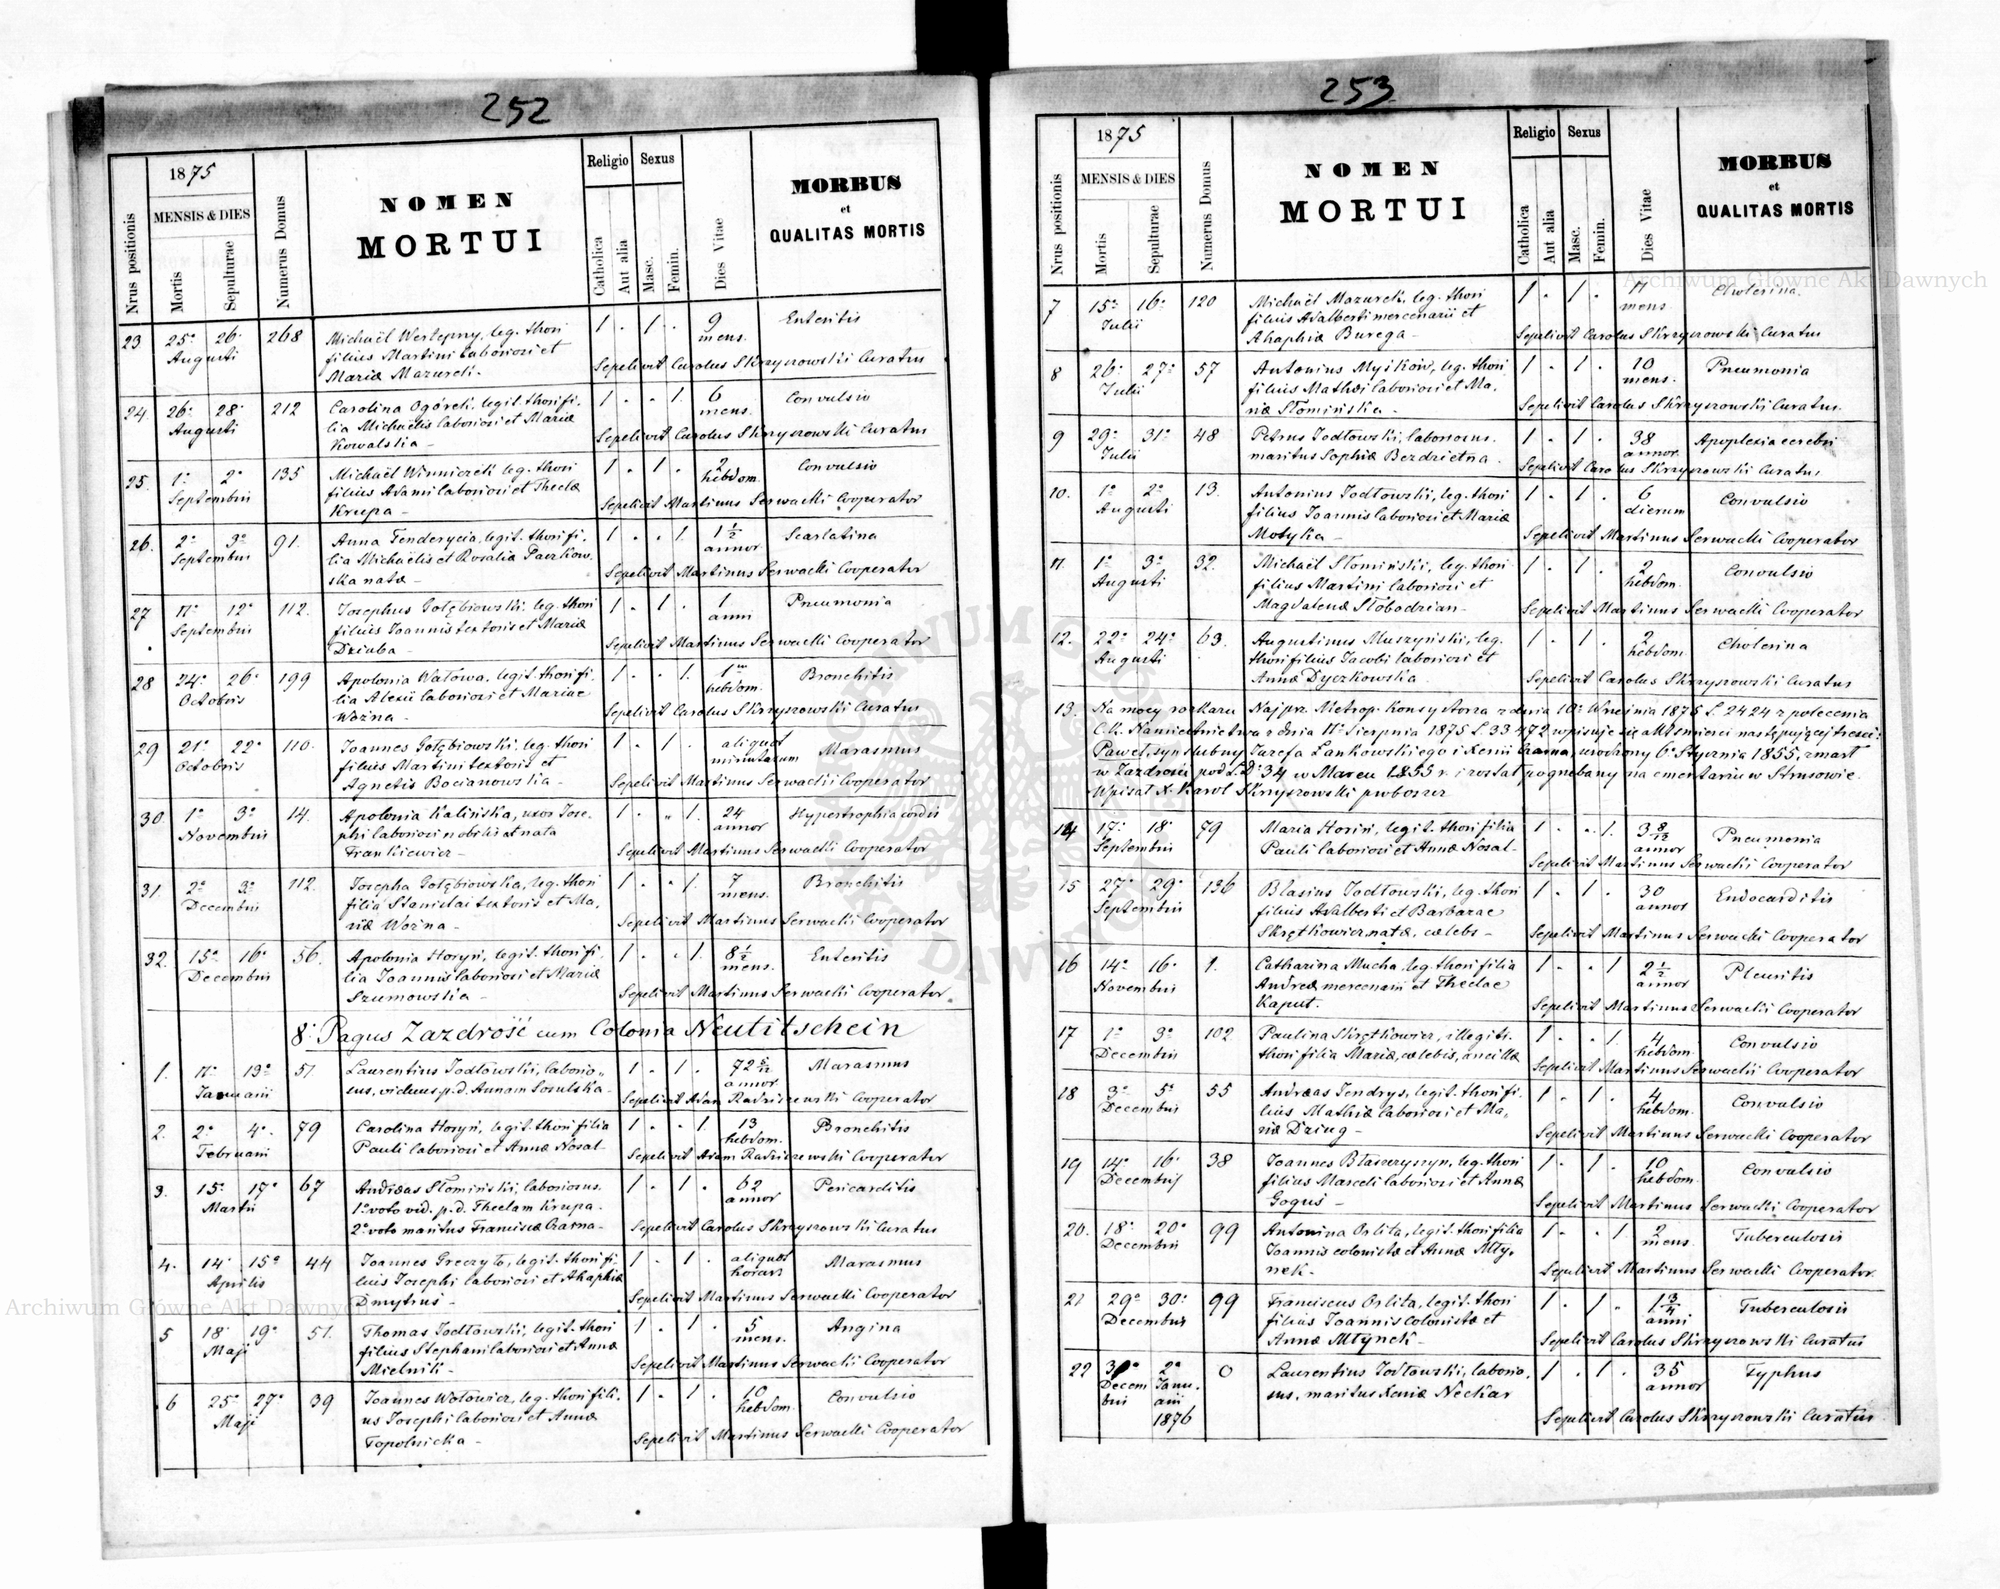 252
1875
MENSIS & DIES
Nrus positionis
Mortis
Sepulturae
Numerus Domus
NOMEN
MORTUI
Religio
Sexus
Catholica
Aut alia
Masc.
Femin.
Dies Vitae
MORBUS
et
QUALITAS MORTIS
23 25ª 26ª 268 Michaël Westepny, leg. thori 1 . 1 . 9 Enteritis
Augusti filius Martini laboriosi et mens.
Mariæ Mazurek. Sepelivit Carolus Skrzyszowski Curatus
24. 26ª 28ª 212 Carolina Ogórek, legit. thori fi- 1 . . 1. 6 Convulsio
Augusti lia Michaelis laboriosi et Mariæ mens.
Kowalska - Sepelivit Carolus Skrzyszowski Curatus
25. 1ª 2ª 135 Michaël Winniczek leg. thori 1 . 1 . 2 Convulsio
Septembris filius Adami laboriosi et Theclæ hebdom.
Krupa - Sepelivit Martinus Serwacki Cooperator
26. 2ª 3ª 91. Anna Fenderycia, legit. thori fi- 1 . . 1. 1 1/2 Scarlatina
Septembris lia Michaëlis et Rosalia Paczkow- annor
ska natæ - Sepelivit Martinus Serwacki Cooperator
27 11ª 12ª 112. Josephus Gołębiowski, leg. thori 1 . 1 . 1 Pneumonia
Septembris filius Joannis textoris et Mariæ anni
Dziuba - Sepelivit Martinus Serwacki Cooperator
28 24ª 26ª 199 Apolonia Watowa, legit. thori fi- 1 . . 1. 1 Bronchitis
Octobris lia Alexii laboriosi et Mariae hebdom.
Woźna - Sepelivit Carolus Skrzyszowski Curatus
29 21ª 22ª 110. Joannes Gołębiowski, leg. thori 1 . 1 . aliquot Marasmus
Octobris filius Martini textoris et minutarum
Agnetis Bocianowska - Sepelivit Martinus Serwacki Cooperator
30. 1ª 3ª 14. Apolonia Kalińska, uxor Jose- 1 . " 1. 24 Hypertrophia cordis
Novembris phi laboriosi nobilis et nata annor
Frankiewicz - Sepelivit Martinus Serwacki Cooperator
31. 2ª 3ª 112. Josepha Gołębiowska, leg. thori 1 . . 1. 7 Bronchitis
Decembris filia Stanislai textoris et Ma- mens.
riæ Woźna - Sepelivit Martinus Serwacki Cooperator
32. 15ª 16ª 56. Apolonia Horyń, legit. thori fi- 1 . . 1. 8 1/2 Enteritis
Decembris lia Joannis laboriosi et Mariæ mens.
Szumowska - Sepelivit Martinus Serwacki Cooperator.
8. Pagus Zazdrość cum Colonia Neutitschein
1. 11ª 13ª 51 Laurentius Jodłowski, laborio- 1 . 1 . 72 5/12 Marasmus
Januarii sus, viduus p.d. Annam Sosulska - annor
Sepelivit Adam Radziszewski Cooperator
2. 2ª 4ª 79 Carolina Horyń, legit. thori filia 1 . . 1. 13 Bronchitis
Februarii Pauli laboriosi et Annæ Nosal - hebdom.
Sepelivit Adam Radziszewski Cooperator
3. 15ª 17ª 67 Andreas Słomiński, laboriosus. 1 . 1 . 62 Pericarditis
Martii 1º voto vid. p.d. Theclam Krupa. annor
2º voto maritus Franciscæ Czarna - Sepelivit Carolus Skrzyszowski Curatus
4. 14ª 15ª 44 Joannes Greczyło, legit. thori fi- 1 . 1 . aliquot Marasmus
Aprilis lius Josephi laboriosi et Ahaphiæ horar.
Dmytruś - Sepelivit Martinus Serwacki Cooperator
5 18ª 19ª 51. Thomas Jodłowski, legit. thori 1 . 1 . 5 Angina
Maji filius Stephani laboriosi et Annæ mens.
Mielnik - Sepelivit Martinus Serwacki Cooperator
6 25ª 27ª 39 Joannes Wołowicz, leg. thori fili- 1 . 1 . 10 Convulsio
Maji us Josephi laboriosi et Annæ hebdom.
Topolnicka - Sepelivit Martinus Serwacki Cooperator
253
1875
MENSIS & DIES
Nrus positionis
Mortis
Sepulturae
Numerus Domus
NOMEN
MORTUI
Religio
Sexus
Catholica
Aut alia
Masc.
Femin.
Dies Vitae
MORBUS
et
QUALITAS MORTIS
7 15ª 16ª 120 Michaël Mazurek, leg. thori 1 . 1 . Cholerina.
Julii filius Adalberti mercenarii et mens.
Ahaphiæ Burega - Sepelivit Carolus Skrzyszowski Curatus
8 26ª 27ª 57 Antonius Myików, leg. thori 1 . 1 . 10 Pneumonia
Julii filius Mathæi laboriosi et Ma- mens.
riæ Słomińska - Sepelivit Carolus Skrzyszowski Curatus.
9 29ª 31ª 48 Petrus Jodłowski, laboriosus. 1 . 1 . 38 Apoplexia cerebri
Julii maritus Sophiæ Bezdzietna - annor.
Sepelivit Carolus Skrzyszowski Curatus
10. 1ª 2ª 13. Antonius Jodłowski, leg. thori 1 . 1 . 6 Convulsio
Augusti filius Joannis laboriosi et Mariæ dierum
Motyka - Sepelivit Martinus Serwacki Cooperator
11. 1ª 3ª 32. Michaël Słomiński, leg. thori 1 . 1 . 2 Convulsio
Augusti filius Martini laboriosi et hebdom.
Magdalenæ Słobodzian - Sepelivit Martinus Serwacki Cooperator
12. 22ª 24ª 63. Augustinus Muszyński, leg. 1 . 1 . 2 Cholerina
Augusti thori filius Jacobi laboriosi et hebdom.
Annæ Dyczkowska - Sepelivit Carolus Skrzyszowski Curatus
13. Na mocy rozkazu Najprz. Metrop. Konsystorza z dnia 10º Września 1875 L. 2424 z polecenia
C.K. Namiestnictwa z dnia 11º Sierpnia 1875 L. 33472 wpisuje się akt śmierci następującej treści:
Paweł, syn ślubny Józefa Lankowskiego i Xenii Czarna, urodzony 6º Stycznia 1855, zmarł
w Zazdrości pod L.D. 34 w Marcu 1855 r. i został pogrzebany na cmentarzu w Strusowie.
Wpisał X. Karol Skrzyszowski proboszcz
14 17ª 18ª 79 Maria Horiń, legit. thori filia 1 . . 1. 3 8/12 Pneumonia
Septembris Pauli laboriosi et Annæ Nosal - annor
Sepelivit Martinus Serwacki Cooperator
15 27ª 29ª 136 Blasius Jodłowski, leg. thori 1 . 1 . 30 Endocarditis
Septembris filius Adalberti et Barbarae annor
Skrętkowicz natæ, cælebs - Sepelivit Martinus Serwacki Cooperator
16 14ª 16ª 1. Catharina Mucha, leg. thori filia 1 . . 1 2 1/2 Pleuritis
Novembris Andreæ mercenarii et Theclae annor
Kaput. Sepelivit Martinus Serwacki Cooperator
17 1ª 3ª 102 Paulina Skrętkowicz, illegiti- 1 . . 1. 4 Convulsio
Decembris thori filia Mariæ, cælebis, ancillæ hebdom.
Sepelivit Martinus Serwacki Cooperator
18 3ª 5ª 55 Andreas Jendrys, legit. thori fi- 1 . 1 . 4 Convulsio
Decembris lius Mathiæ laboriosi et Ma- hebdom.
riæ Dziug - Sepelivit Martinus Serwacki Cooperator
19 14ª 16ª 38 Joannes Błaszczyszyn, leg. thori 1 . 1 . 10 Convulsio
Decembris filius Marceli laboriosi et Annæ hebdom.
Goguś - Sepelivit Martinus Serwacki Cooperator
20. 18ª 20ª 99 Antonina Orlita, legit. thori filia 1 . . 1. 2 Tuberculosis
Decembris Joannis colonistæ et Annæ Mły- mens.
nek. Sepelivit Martinus Serwacki Cooperator.
21 29ª 30ª 99 Franciscus Orlita, legit. thori 1 . 1 . 1 3/4 Tuberculosis
Decembris filius Joannis colonistæ et anni.
Annæ Młynek - Sepelivit Carolus Skrzyszowski Curatus
22 2ª 0 Laurentius Jodłowski, laborio- 1 . 1 . 35 Typhus
Decem Janu- sus, maritus Xeniæ Neckar annor
bris arii
1876 Sepelivit Carolus Skrzyszowski Curatus
Archiwum Główne Akt Dawnych
Archiwum Główne Akt Dawnych
ARCHIWUM GŁÓWNE AKT DAWNYCH